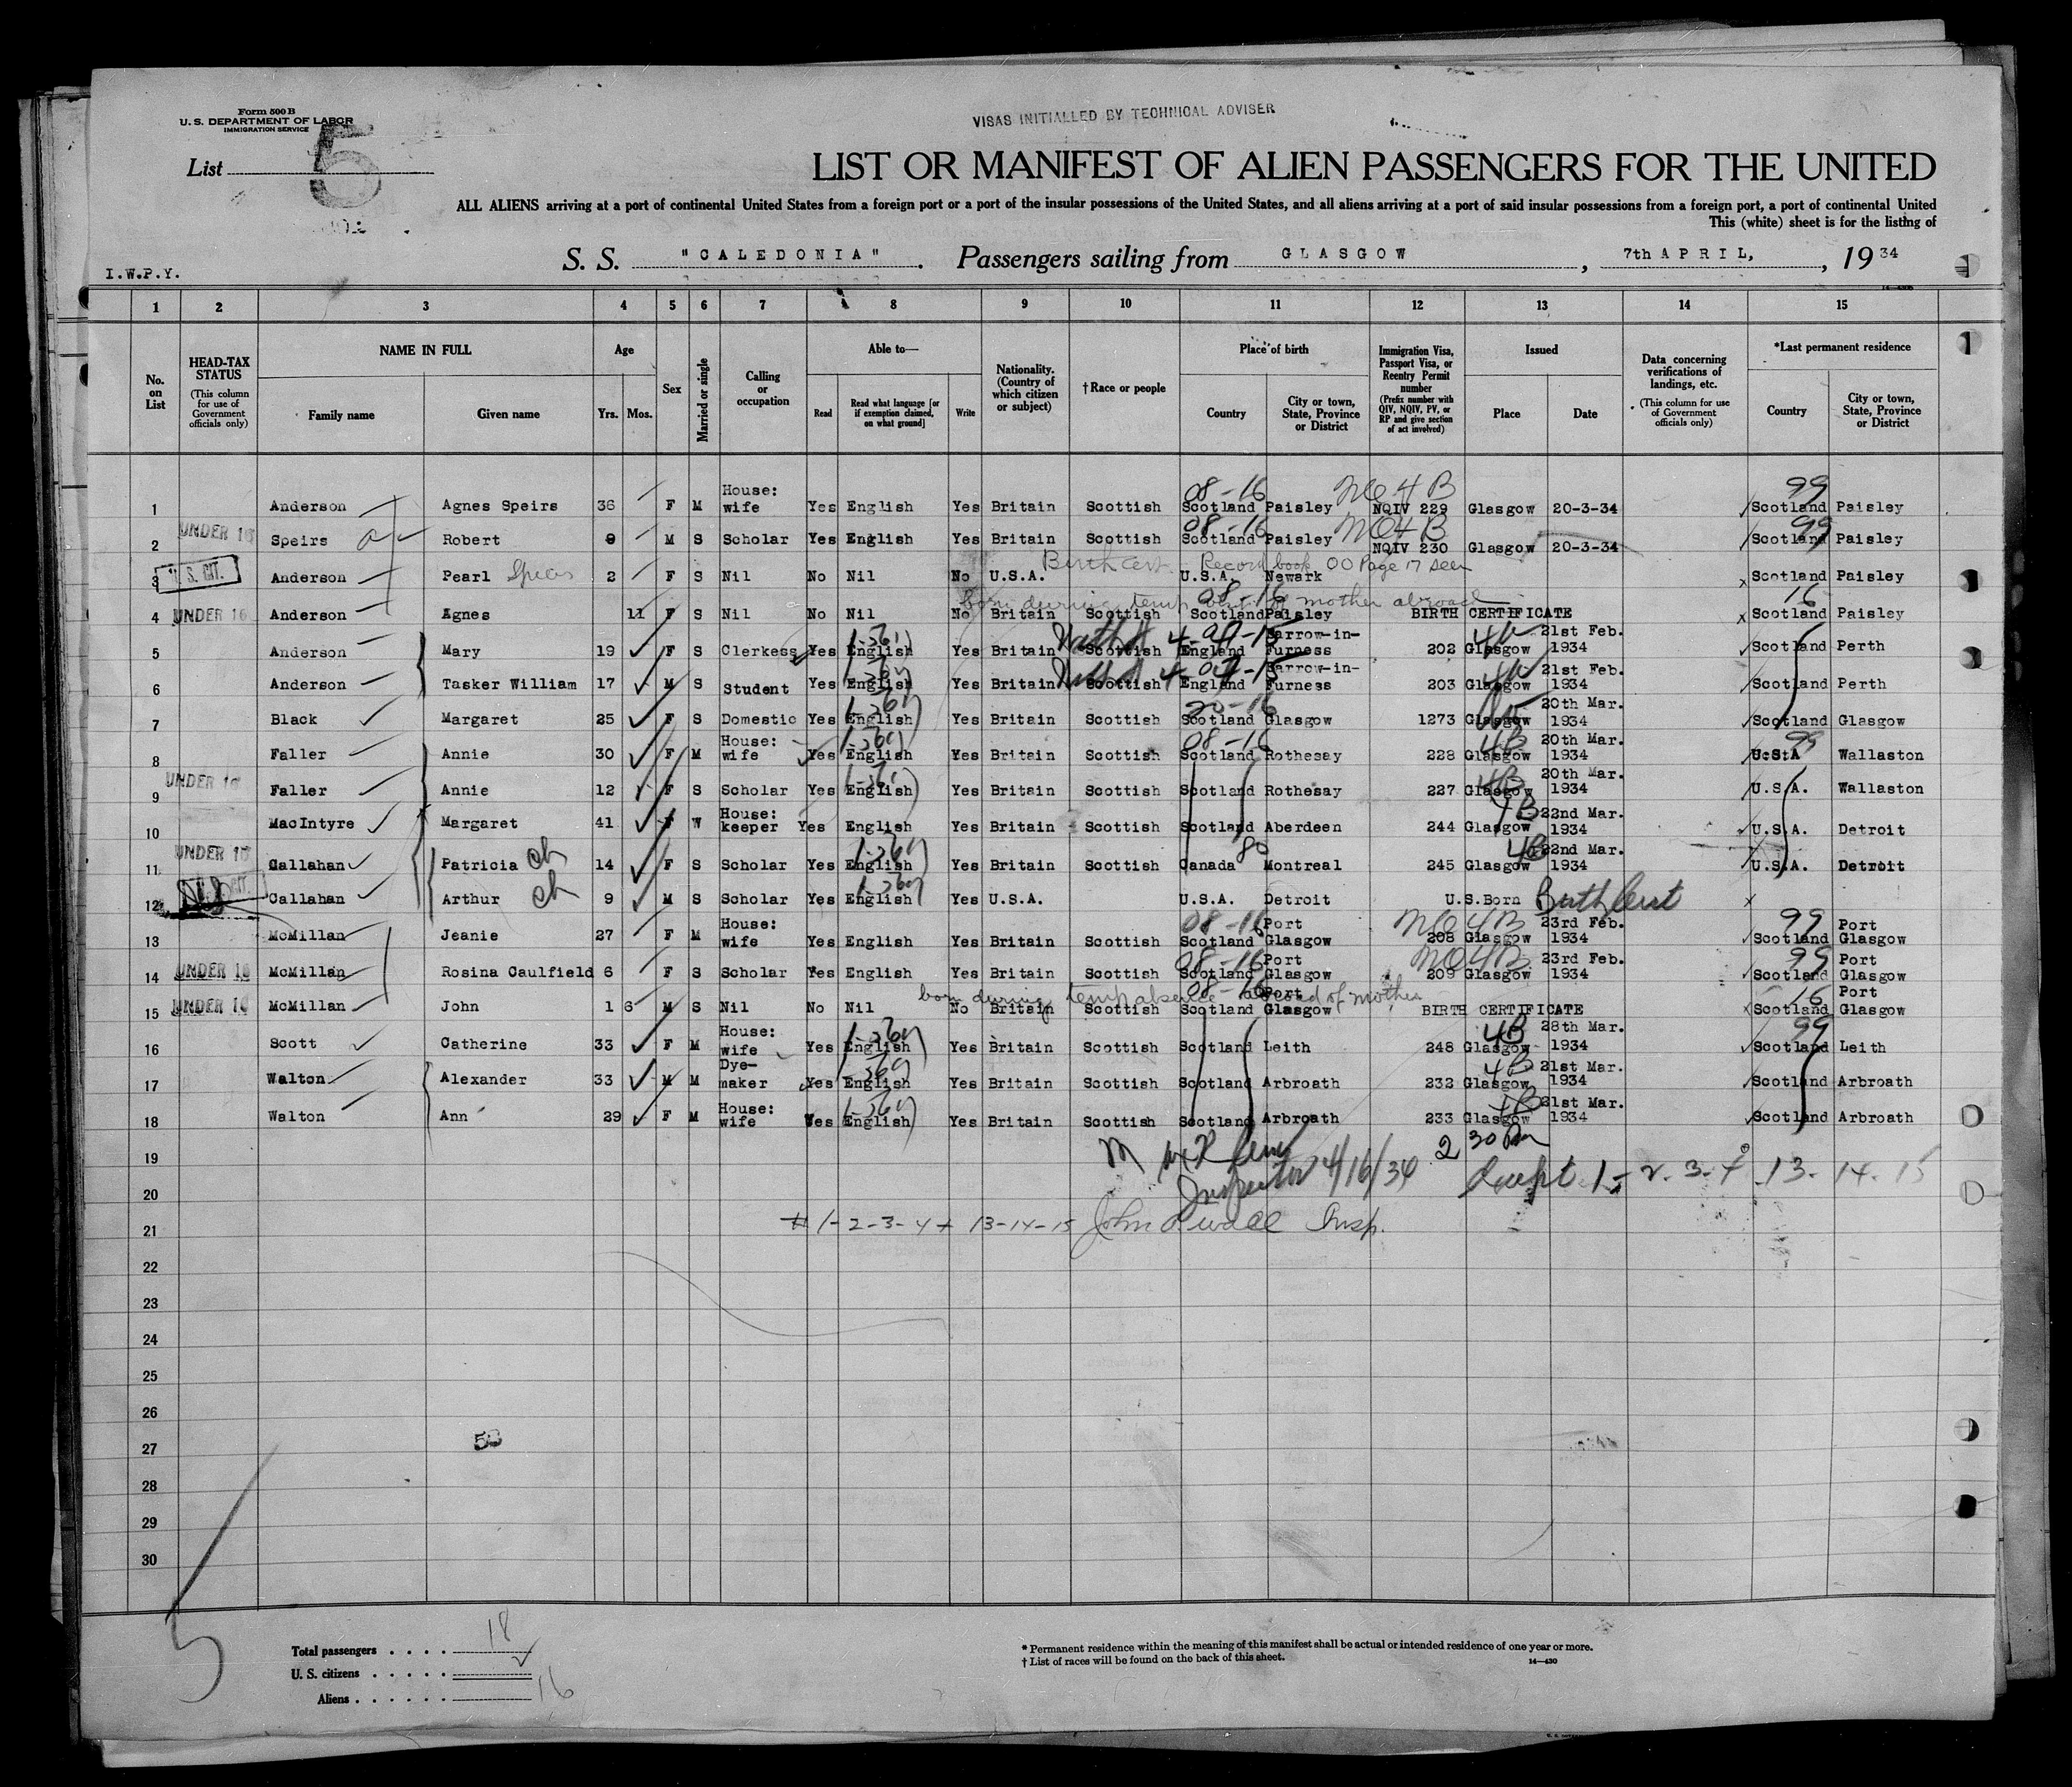 Form 500 B
U. S. DEPARTMENT OF LABOR
IMMIGRATION SERVICE
VISAS INITIALLED BY TECHNICAL ADVISER
List 5
LIST OR MANIFEST OF ALIEN PASSENGERS FOR THE UNITED
ALL ALIENS arriving at a port of continental United States from a foreign port or a port of the insular possessions of the United States, and all aliens arriving at a port of said insular possessions from a foreign port, a port of continental United
This (white) sheet is for the listing of
I.W.P.Y.
S. S. "CALEDONIA". Passengers sailing from GLASGOW, 7th APRIL, 19 34
1 2 3 4 5 6 7 8 9 10 11 12 13 14 15
No. on List
HEAD-TAX STATUS (This column for use of Government officials only)
NAME IN FULL
Family name Given name
Age
Yrs. Mos.
Sex
Married or single
Calling or occupation
Able to—
Read Read what language [or if exemption claimed, on what ground] Write
Nationality. (Country of which citizen or subject)
† Race or people
Place of birth
Country City or town, State, Province or District
Immigration Visa, Passport Visa, or Reentry Permit number (Prefix number with QIV, NQIV, PV, or RP and give section of act involved)
Issued
Place Date
Data concerning verifications of landings, etc. (This column for use of Government officials only)
*Last permanent residence
Country City or town, State, Province or District
08-16 NQ 4 B 99
1 Anderson Agnes Speirs 36 F M House: wife Yes English Yes Britain Scottish Scotland Paisley NQIV 229 Glasgow 20-3-34 Scotland Paisley
08-16 NQ 4 B 99
2 UNDER 16 Speirs Robert 9 M S Scholar Yes English Yes Britain Scottish Scotland Paisley NQIV 230 Glasgow 20-3-34 Scotland Paisley
Birth Cert. Record book 00 Page 17 seen
3 U.S. CIT. Anderson Pearl Speirs 2 F S Nil No Nil No U.S.A. U.S.A. Newark Scotland Paisley
born during temp visit of mother abroad 08-16 16
4 UNDER 16 Anderson Agnes 11 F S Nil No Nil No Britain Scottish Scotland Paisley BIRTH CERTIFICATE Scotland Paisley
5 Anderson Mary 19 F S Clerkess Yes English Yes Britain Scottish England Barrow-in-Furness 202 Glasgow 21st Feb. 1934 Scotland Perth
6 Anderson Tasker William 17 M S Student Yes English Yes Britain Scottish England Barrow-in-Furness 203 Glasgow 21st Feb. 1934 Scotland Perth
7 Black Margaret 25 F S Domestic Yes English Yes Britain Scottish Scotland Glasgow 1273 Glasgow 20th Mar. 1934 Scotland Glasgow
08-16 4B 99
8 Faller Annie 30 F M House: wife Yes English Yes Britain Scottish Scotland Rothesay 228 Glasgow 20th Mar. 1934 U.S.A Wallaston
9 UNDER 16 Faller Annie 12 F S Scholar Yes English Yes Britain Scottish Scotland Rothesay 227 Glasgow 4B 20th Mar. 1934 U.S.A. Wallaston
10 MacIntyre Margaret 41 F W House: keeper Yes English Yes Britain Scottish Scotland Aberdeen 244 Glasgow 4B 22nd Mar. 1934 U.S.A. Detroit
11 UNDER 16 Callahan Patricia ch 14 F S Scholar Yes English Yes Britain Scottish Canada 80 Montreal 245 Glasgow 4B 22nd Mar. 1934 U.S.A. Detroit
12 Callahan Arthur ch 9 M S Scholar Yes English Yes U.S.A. U.S.A. Detroit U.S.Born Birth Cert
13 McMillan Jeanie 27 F M House: wife Yes English Yes Britain Scottish 08-16 Scotland Port Glasgow NQ 4B 208 Glasgow 23rd Feb. 1934 99 Scotland Port Glasgow
14 UNDER 16 McMillan Rosina Caulfield 6 F S Scholar Yes English Yes Britain Scottish 08-16 Scotland Port Glasgow NQ 4B 209 Glasgow 23rd Feb. 1934 99 Scotland Port Glasgow
born during temp absence abroad of mother
15 UNDER 16 McMillan John 1 6 M S Nil No Nil No Britain Scottish 08-16 Scotland Port Glasgow BIRTH CERTIFICATE 16 Scotland Port Glasgow
16 Scott Catherine 33 F M House: wife Yes English Yes Britain Scottish Scotland Leith 248 Glasgow 4B 28th Mar. 1934 99 Scotland Leith
17 Walton Alexander 33 M M Dye-maker Yes English Yes Britain Scottish Scotland Arbroath 232 Glasgow 4B 21st Mar. 1934 Scotland Arbroath
18 Walton Ann 29 F M House: wife Yes English Yes Britain Scottish Scotland Arbroath 233 Glasgow 4B 21st Mar. 1934 Scotland Arbroath
19 2 30 Pm
20 Inspector 4/16/34 Except 1-2-3-4 13-14-15
21 # 1-2-3-4 + 13-14-15 John Insp.
22
23
24
25
26
27 53
28
29
30
5
Total passengers . . . . 18
U. S. citizens . . . . . 2
Aliens . . . . . . 16
* Permanent residence within the meaning of this manifest shall be actual or intended residence of one year or more.
† List of races will be found on the back of this sheet.
14—430